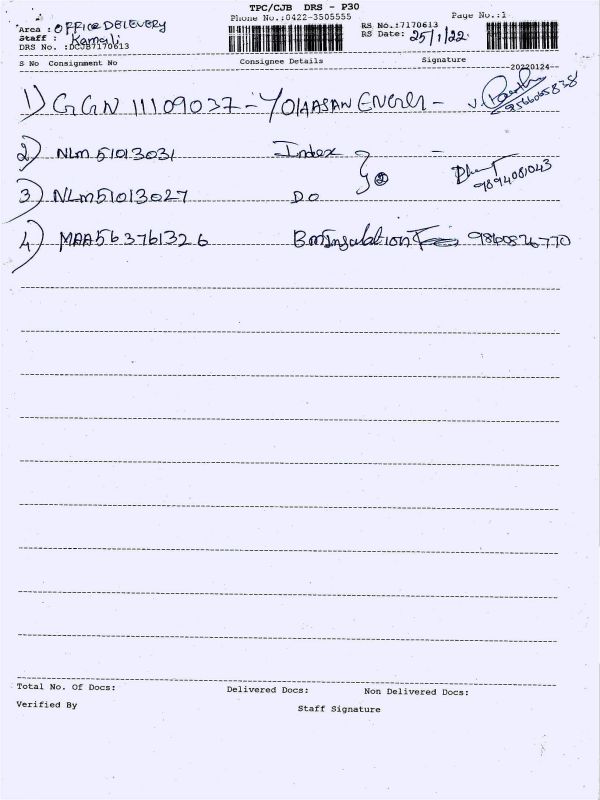 TPC/CJB DRS - P30
Phone No.:0422-3505555
Page No.:1
Area : OFFICE DELEVERY
Staff : Kamali
DRS No. :DCJB7170613
RS No.:7170613
RS Date: 25/1/22
S No Consignment No Consignee Details Signature
20220124
1) GGN 11109037 - YOLAASAN ENERGI - 9566065838
2) NLM 51013031 Index -
3) NLM51013027 DO } ② 9894081043
4) MAA563761326 BmInsulation 9840876770
Total No. Of Docs: Delivered Docs: Non Delivered Docs:
Verified By Staff Signature